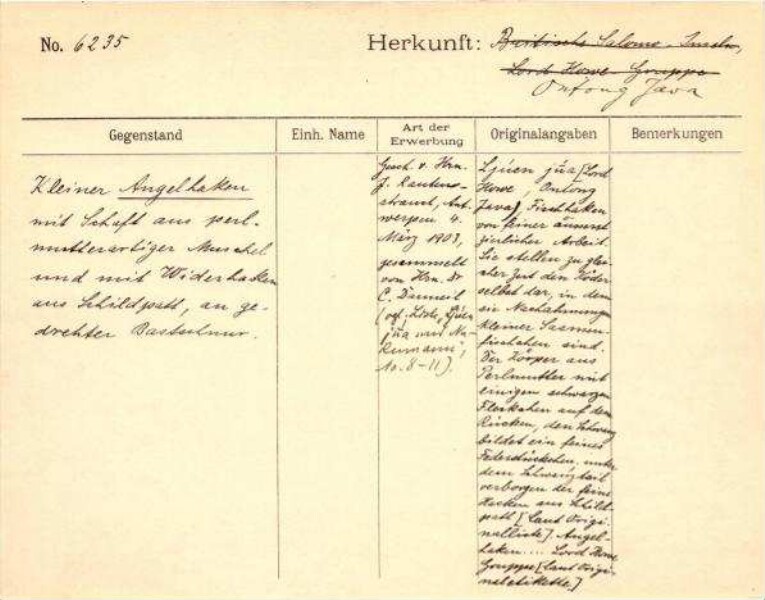 No. 6235
Herkunft: Britische Salomo-Inseln,
Lord Howe-Gruppe
Ontong Java
Gegenstand
Einh. Name
Art der Erwerbung
Originalangaben
Bemerkungen
Kleiner Angelhaken
mit Schaft aus perl-
mutterartiger Muschel
und mit Widerhaken
aus Schildpatt, an ge-
drehter Bastschnur.
Gesch. v. Hrn.
J. Rautens-
strauch, Ant-
werpen 4.
März 1903,
gesammelt
von Hrn. Dr
C. Danneil
(vgl. Liste,
jūa und
No. 8-11).
Ljúen jūa [Lord
Howe, Ontong
Java] Fischhaken
von feiner äusserst
zierlicher Arbeit.
Sie stellen zu glei-
cher Zeit den Köder
selbst dar, in dem
sie Nachahmungen
kleiner
fischchen sind.
Der Körper aus
Perlmutter mit
einigen schwarzen
Fleckchen auf dem
Rücken, den Schwanz
bildet ein feines
Federstückchen, unter
dem Schwanzteil
verborgen der feine
Hacken aus Schild-
patt [laut Origi-
nalliste]. Angel-
haken.... Lord Howe
Gruppe [laut Origi-
naletikette.]